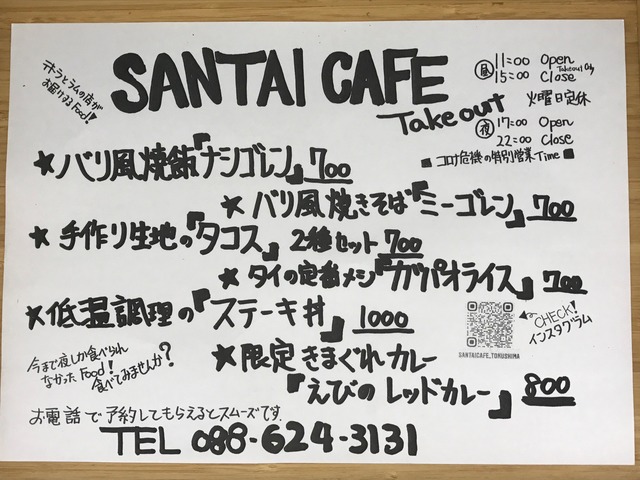 ホラとラムの店が
お届けするFood!
SANTAI CAFE
Takeout
昼 11:00 Open
Takeout Only
15:00 Close
火曜日定休
夜 17:00 Open
22:00 Close
■コロナ危機の特別営業Time■
★バリ風焼飯『ナシゴレン』700
★バリ風焼きそば『ミーゴレン』700
★手作り生地の『タコス』2種セット700
★タイの定番メシ『ガパオライス』700
★低温調理の『ステーキ丼』1000
CHECK!
インスタグラム
SANTAICAFE.TOKUSHIMA
今まで夜しか食べられ
なかったFood!
食べてみませんか?
★限定きまぐれカレー
『えびのレッドカレー』800
お電話で予約してもらえるとスムーズです
TEL 088-624-3131